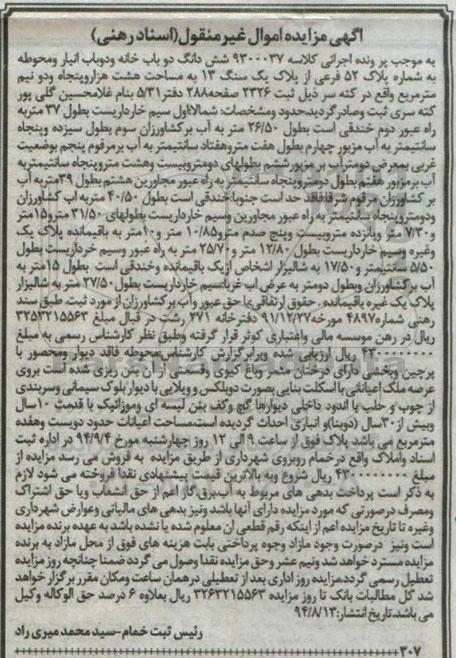 آگهی مزایده اموال غیر منقول(اسناد رهنی)
به موجب پرونده اجرائی کلاسه ۹۳۰۰۰۳۷ شش دانگ دو باب خانه ودوباب انبار ومحوطه
به شماره پلاک ۵۲ فرعی از پلاک یک سنگ ۱۳ به مساحت هشت هزاروپنجاه ودو نیم
مترمربع واقع در کته سر ذیل ثبت ۲۳۲۶ صفحه۲۸۸ دفتر۵/۳۱ بنام غلامحسین گلی پور
کته سری ثبت وصادر گردیدحدود ومشخصات: شمالااول سیم خارداریست بطول ۳۷ متربه
راه عبور دوم خندقی است بطول ۲۶/۵۰ متر به آب برکشاورزان سوم بطول سیزده وپنجاه
سانتیمتر به آب مزبور چهارم بطول هفت متروهفتاد سانتیمتر به آب برمرقوم پنجم بوضعیت
غربی بمعرض دومترآب بر مزبورششم بطولهای دومتروبیست وهشت متروپنجاه سانتیمتربه
آب برمزبور هفتم بطول دومتروپنجاه سانتیمتر به راه عبور مجاورین هشتم بطول ۳۹متربه آب
بر کشاورزان مرقوم شرقافاقد حد است جنوبا:خندقی است بطول ۴۰/۵۰ متربه آب کشاورزان
ودومتروپنجاه سانتیمتر به راه عبور مجاورین وسیم خارداریست بطولهای ۳۱/۵۰ مترو۱۵متر
و۷/۳۰ متر وپانزده متروبیست وپنج صدم مترو۱۰/۸۵ متر و۱۰متر به باقیمانده پلاک یک
وغیره وسیم خارداریست بطول ۱۲/۸۰ متر و۲۵/۷۰ متر به راه عبور وسیم خرداریست بطول
۵/۵۰ سانتیمتر و۱۷/۵۰ به شالیزار اشخاص ازیک باقیمانده وخندقی است بطول ۱۵متر به
آب بر کشاورزان وبطول دومتر به عرض آب غرباسیم خارداریست بطول ۲۷/۵۰ متر به شالیزار
پلاک یک غیره باقیمانده. حقوق ارتفاقی: حق عبور وآب بر کشاورزان از مورد ثبت. طبق سند
رهنی شماره۴۸۹۷ مورخه۹۱/۱۲/۲۷ دفترخانه ۲۷۱ رشت در قبال مبلغ ۳۲۵۳۲۱۵۵۶۳
ریال در رهن موسسه مالی واعتباری کوثر قرار گرفته وطبق نظر کارشناس رسمی به مبلغ
ریال ارزیابی شده وبرابرگزارش کارشناس:محوطه فاقد دیوار ومحصور با
پرچین وبخشی دارای درختان مثمر وباغ کیوی وقسمتی از آن بتن ریزی شده است بروی
عرصه ملک اعیانانی بااسکلت بنایی بصورت دوبلکس و ویلایی با دیوار بلوک سیمانی وسربندی
از چوب و حلب با اندود داخلی دیوارها گچ وکف بتن لیسه ای وموزائیک با قدمت ۱۰سال
وبیش از۳۰سال (دوبنا)و انباری احداث گردیده است.مساحت اعیانات حدود دویست وهفده
مترمربع می باشد پلاک فوق از ساعت ۹ الی ۱۲ روز چهارشنبه مورخ ۹۴/۹/۴ در اداره ثبت
اسناد واملاک واقع در خمام روبروی شهرداری از طریق مزایده به فروش می رسد مزایده از
ریال شروع وبه بالاترین قیمت پیشنهادی نقدا فروخته می شود لازم
به ذکر است پرداخت بدهی های مربوط به آب،برق،گاز اعم از حق انشعاب ویا حق اشتراک
ومصرف درصورتی که مورد مزایده دارای آنها باشد ونیز بدهی های مالیاتی وعوارض شهرداری
وغیره تا تاریخ مزایده اعم از اینکه رقم قطعی آن معلوم شده یا نشده باشد به عهده برنده مزایده
است ونیز درصورت وجود مازاد وجوه پرداختی بابت هزینه های فوق از محل مازاد به برنده
مزایده مسترد خواهد شد ونیم عشر وحق مزایده نقدا وصول می گردد ضمنا چنانچه روز مزایده
تعطیل رسمی گردد،مزایده روز اداری بعد از تعطیلی در همان ساعت ومکان مقرر برگزار خواهد
شد کل مطالبات بانک تا روز مزایده ۳۲۶۳۲۱۵۵۶۳ ریال بعلاوه ۶ درصد حق الوکاله وکیل
می باشد.تاریخ انتشار:۹۴/۸/۱۳
رئیس ثبت خمام-سید محمد میری راد
۳۰۷